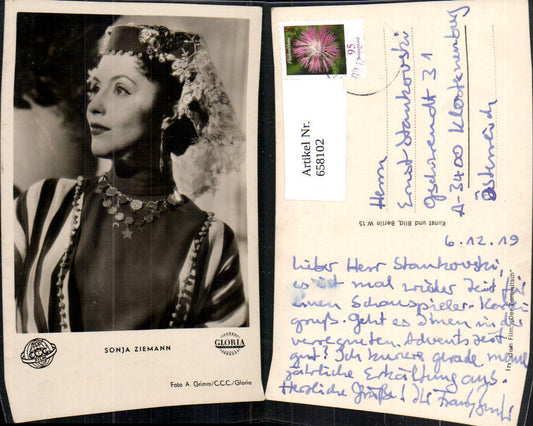 SONJA ZIEMANN
GLORIA
Foto A. Grimm/C.C.C./Gloria
Artikel Nr.
658102
95
Herrn
Ernst Stankovski
Gschwendt 31
A-3400 Klosterneuburg
Österreich
Kunst und Bild, Berlin W 15
6.12.19
Lieber Herr Stankovski,
es ist mal wieder Zeit für
einen Schauspieler-Karten
gruß. Geht es Ihnen in der
verregneten Adventszeit
gut? Ich kuriere gerade meine
jährliche Erkältung aus.
Herzliche Grüße! Ihr Franz
In dem Film